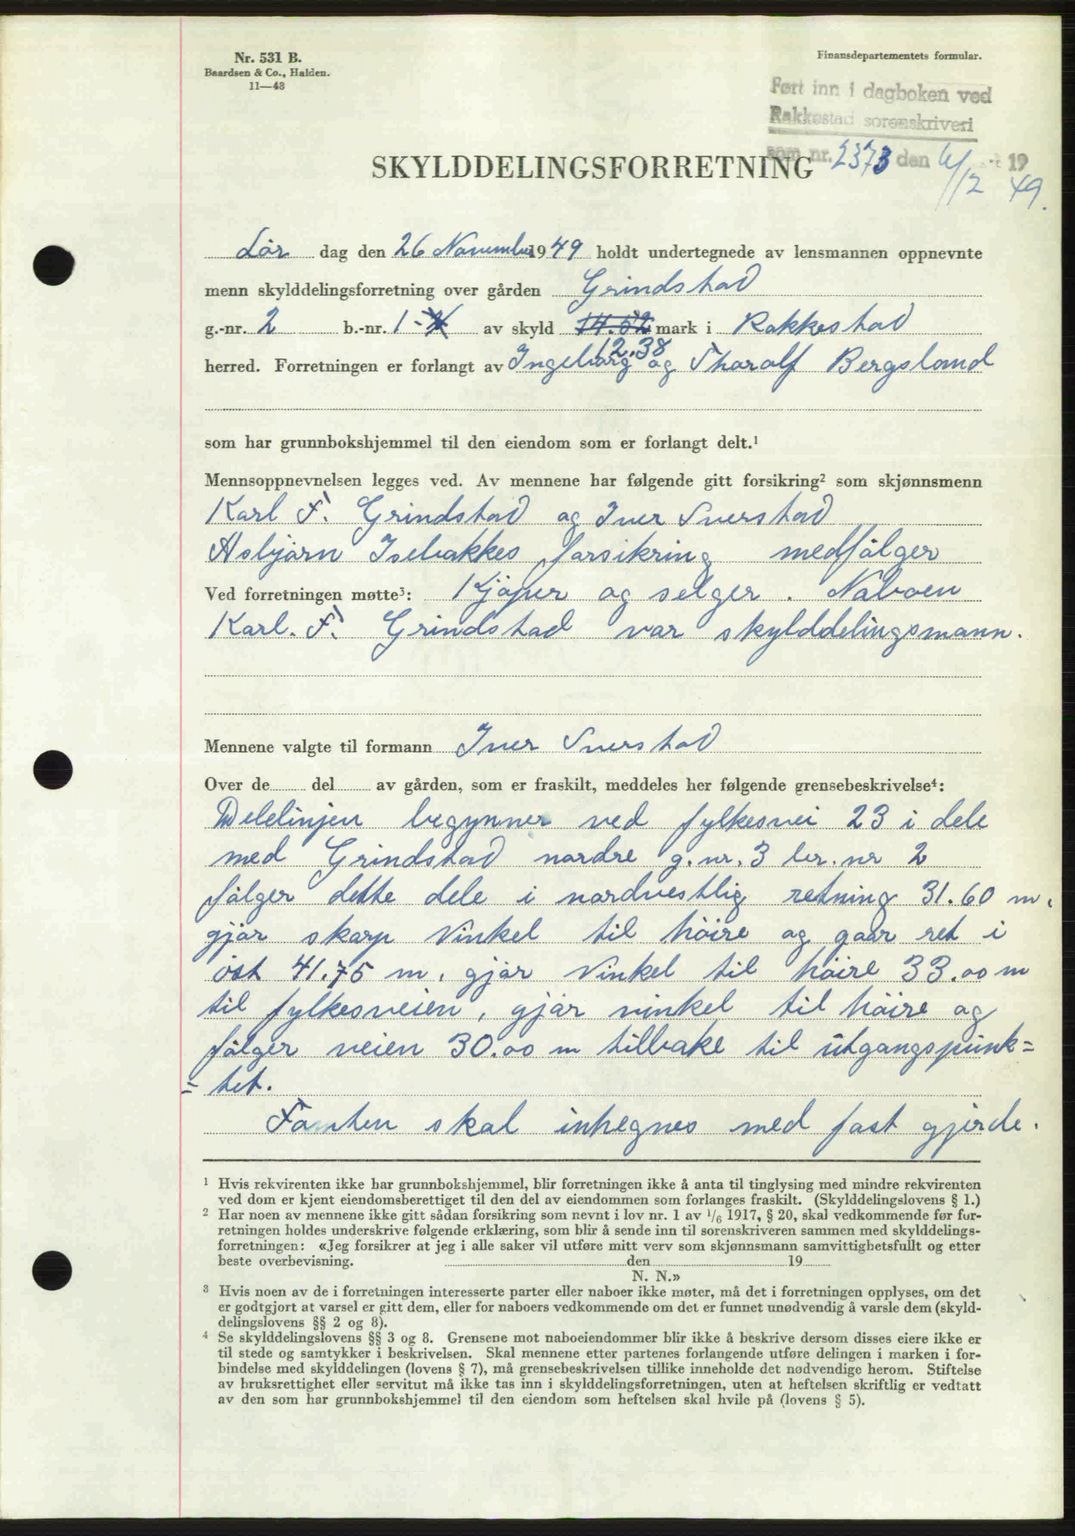 Nr. 531 B.
Baardsen & Co., Halden.
11—48
Finansdepartementets formular.
Ført inn i dagboken ved
Rakkestad sorenskriveri
som nr. 2373 den 6/12 19 49.
SKYLDDELINGSFORRETNING
Lör dag den 26 November 1949 holdt undertegnede av lensmannen oppnevnte
menn skylddelingsforretning over gården Grindstad
g.-nr. 2 b.-nr. 1 av skyld 14.52 mark i Rakkestad
12.38
herred. Forretningen er forlangt av Ingeborg og Tharalf Bergsland
som har grunnbokshjemmel til den eiendom som er forlangt delt.¹
Mennsoppnevnelsen legges ved. Av mennene har følgende gitt forsikring² som skjønnsmenn
Karl F. Grindstad og Iver Sverstad
Asbjørn Isebakkes forsikring medfølger
Ved forretningen møtte³: Kjöper og selger. Naboen
Karl. F. Grindstad var skylddelingsmann.
Mennene valgte til formann Iver Sverstad
Over de del av gården, som er fraskilt, meddeles her følgende grensebeskrivelse⁴:
Delelinjen begynner ved fylkesvei 23 i dele
med Grindstad nordre g.nr. 3 br. nr 2
fölger dette dele i nordvestlig retning 31.60 m.
gjör skarp vinkel til höire og gaar ret i
öst 41.75 m. gjör vinkel til höire 33.00 m
til fylkesveien, gjör vinkel til höire og
fölger veien 30.00 m tilbake til utgangspunk=
= tet.
Tomten skal inhegnes med fast gjerde.
¹ Hvis rekvirenten ikke har grunnbokshjemmel, blir forretningen ikke å anta til tinglysing med mindre rekvirenten
ved dom er kjent eiendomsberettiget til den del av eiendommen som forlanges fraskilt. (Skylddelingslovens § 1.)
² Har noen av mennene ikke gitt sådan forsikring som nevnt i lov nr. 1 av 1/6 1917, § 20, skal vedkommende før for-
retningen holdes underskrive følgende erklæring, som blir å sende inn til sorenskriveren sammen med skylddelings-
forretningen: «Jeg forsikrer at jeg i alle saker vil utføre mitt verv som skjønnsmann samvittighetsfullt og etter
beste overbevisning. den 19
N. N.»
³ Hvis noen av de i forretningen interesserte parter eller naboer ikke møter, må det i forretningen opplyses, om det
er godtgjort at varsel er gitt dem, eller for naboers vedkommende om det er funnet unødvendig å varsle dem (skyld-
delingslovens §§ 2 og 8).
⁴ Se skylddelingslovens §§ 3 og 8. Grensene mot naboeiendommer blir ikke å beskrive dersom disses eiere ikke er
til stede og samtykker i beskrivelsen. Skal mennene etter partenes forlangende utføre delingen i marken i for-
bindelse med skylddelingen (lovens § 7), må grensebeskrivelsen tillike inneholde det nødvendige herom. Stiftelse
av bruksrettighet eller servitut må ikke tas inn i skylddelingsforretningen, uten at heftelsen skriftlig er vedtatt
av den som har grunnbokshjemmel til den eiendom som heftelsen skal hvile på (lovens § 5).